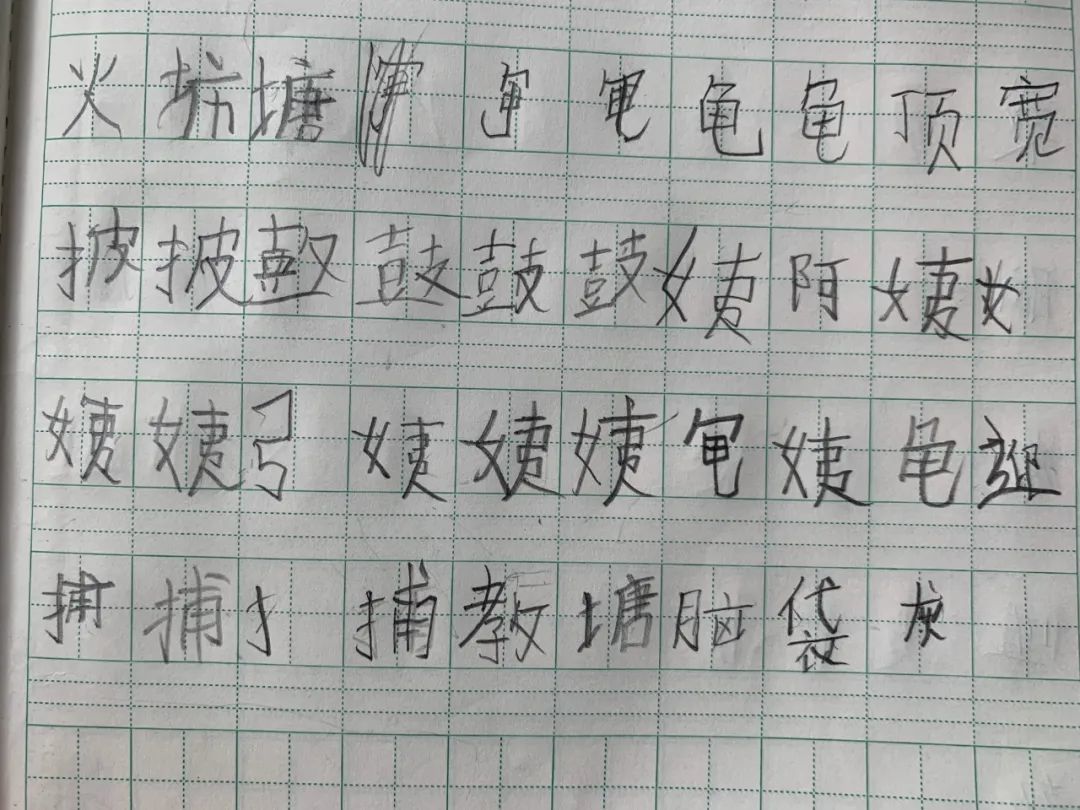 火坊塘龟龟顶宽
披披鼓鼓鼓姨阿姨女
姨姨弓姨姨姨姨龟
捕捕扌捕教塘脑袋灰